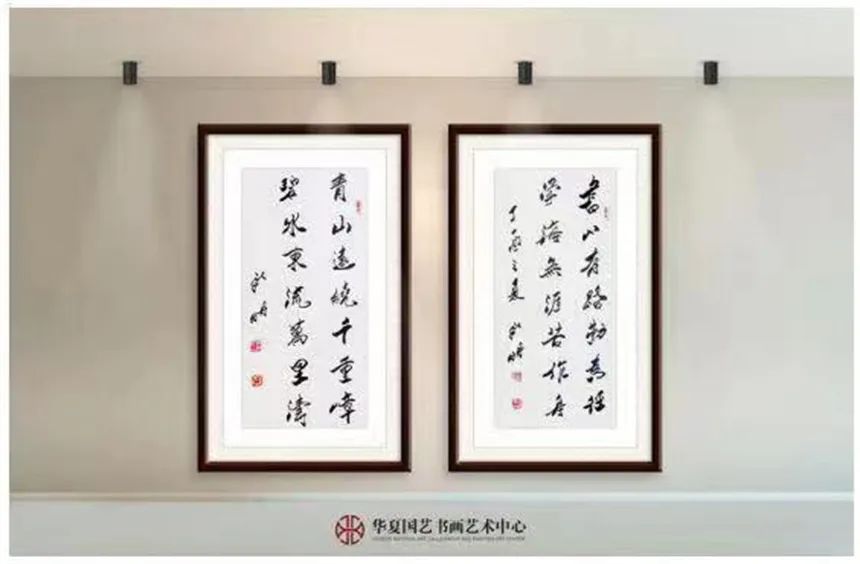 青山遠繞千重嶂
碧水東流萬里濤
書山有路勤為徑
學海無涯苦作舟
丁酉之夏
华夏国艺书画艺术中心